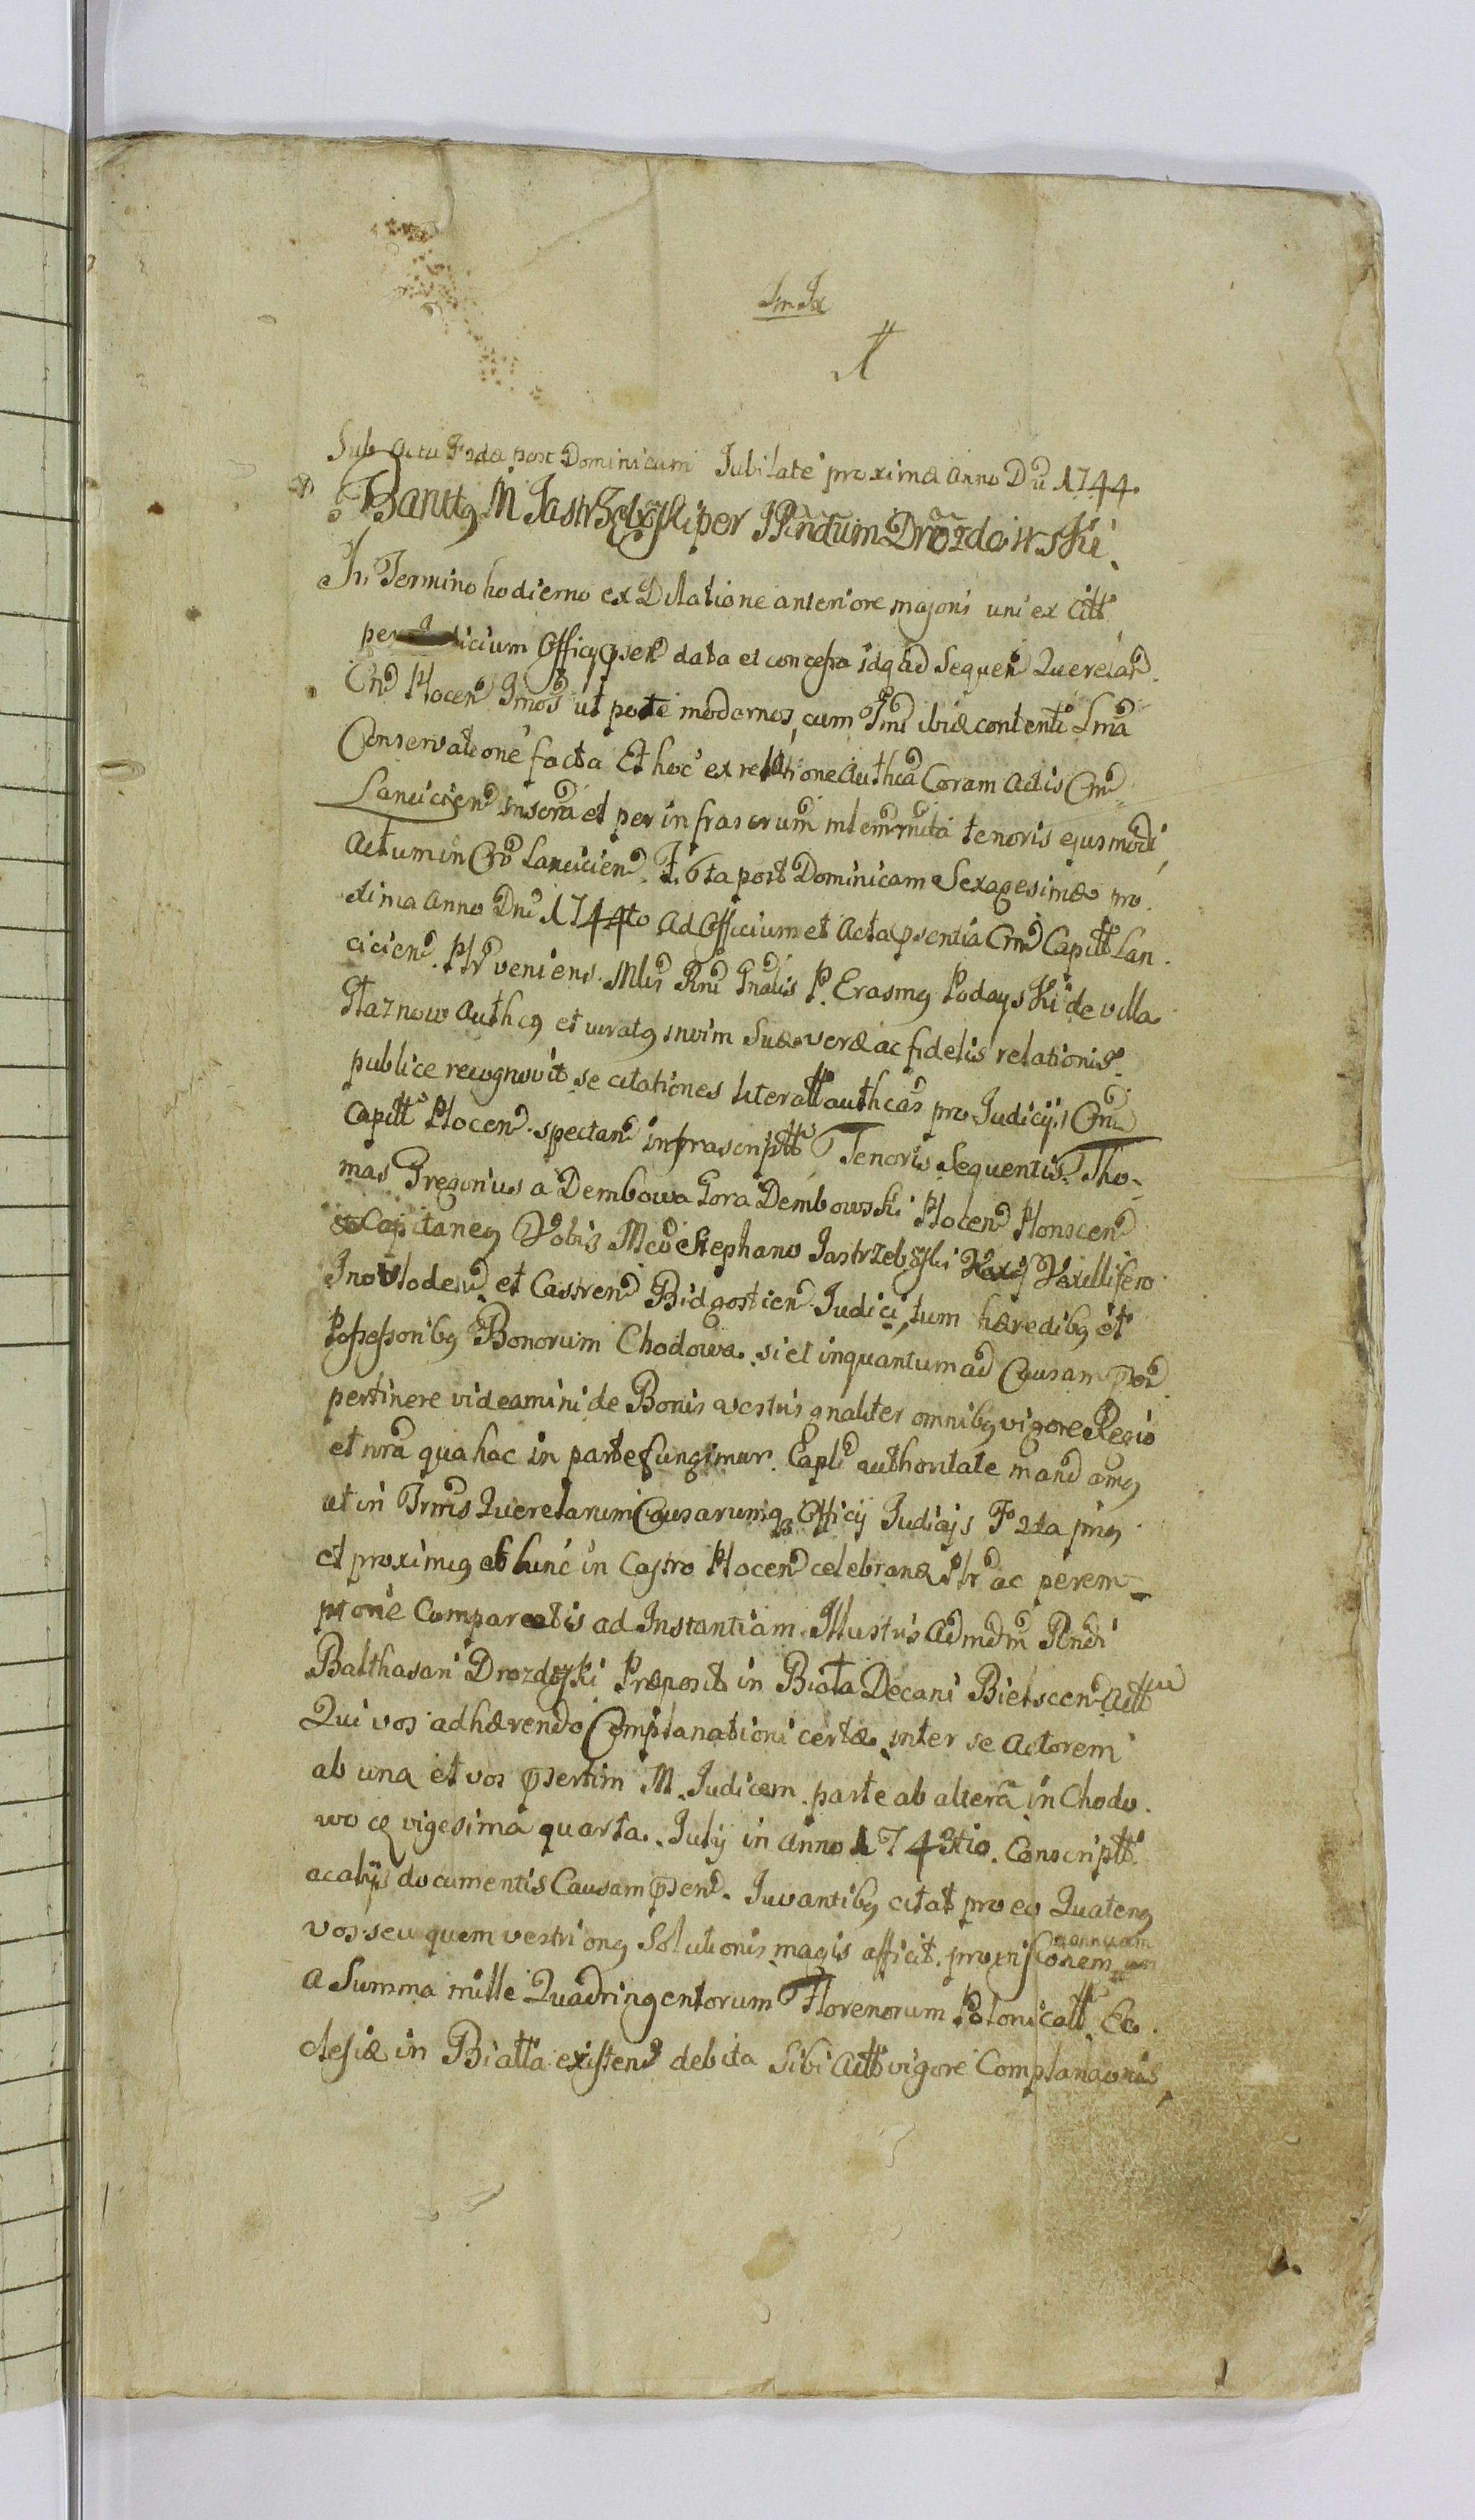 Sub Actu Fr 2da post Dominicam Jubilate proxima Anno Dni 1744.
Bantg M Jastrzębski per Rndum Drozdowski
In Termino hodierno ex Dilatione anteriore majori uni ex Citt
per Judicium Officy psen data et concessa idq ad Sequen Querelar.
Cn Plocen Jmos ut pote modernos, cum Jmi ibide contenti Lma
Conservatione facta Et hoc ex relatione Authca Coram Actis Cm
Lancicien inserta et per infrascrum intermta tenoris ejusmodi,
Actum in Cro Lancicien. F. 6ta post Dominicam Sexagesimæ pro
xima Anno Dni 1744to Ad Officium et Acta psentia Crm Capitt Lan.
cicien. Plr veniens. Mlis Rni Gnalis P. Erasmg Podayski de villa
Głaznow Authcg et juratg in vim Suæ veræ ac fidelis relationis.
publice recognovit se citationes literatt authcas pro Judicijs Crm
Capitt Plocen. spectan infrascriptt Tenoris Sequentis. Tho-
mas Gregorius a Dembowa Gora Dembowski Plocen Plonscen
Capitaneg Vobis Mco Stephano Jastrzębski Vexillifero
Inowłoden. et Castren Bidgostien Judici, tum hæredibg et
Possessoribg Bonorum Chodowa. si et inquantum ad Causam psen
pertinere videamini de Bonis vestris gnaliter omnibg vigore Regio
et nra qua hac in parte fungimur. Capli authoritate mand amg
ut in Trmis Querelarum Causarumq Officij Judicijs F 2da prig
et proximeg ab hunc in Castro Plocen celebran Plr ac perem-
ptorie Compareatis ad Instantiam Illustris Admdm Rndi
Balthasari Drozdoski Præposit in Biała Decani Bielscen Actt
Qui vos adhærendo Complanationi certæ inter se Actorem
ab una et vos psertim M. Judicem. parte ab altera in Chodo.
wo vigesima quarta. July in Anno 1743tio. Conscriptt.
ac alijs documentis Causam psen. Juvantibg citat pro eo Quateng
vos seu quem vestri ong Solutionis magis afficit. provisionem annuam
a Summa mille Quadringentorum Florenorum Polonicatt. Ec.
clesiæ in Biatta existen debita Sibi Actt vigore Complanaonis,